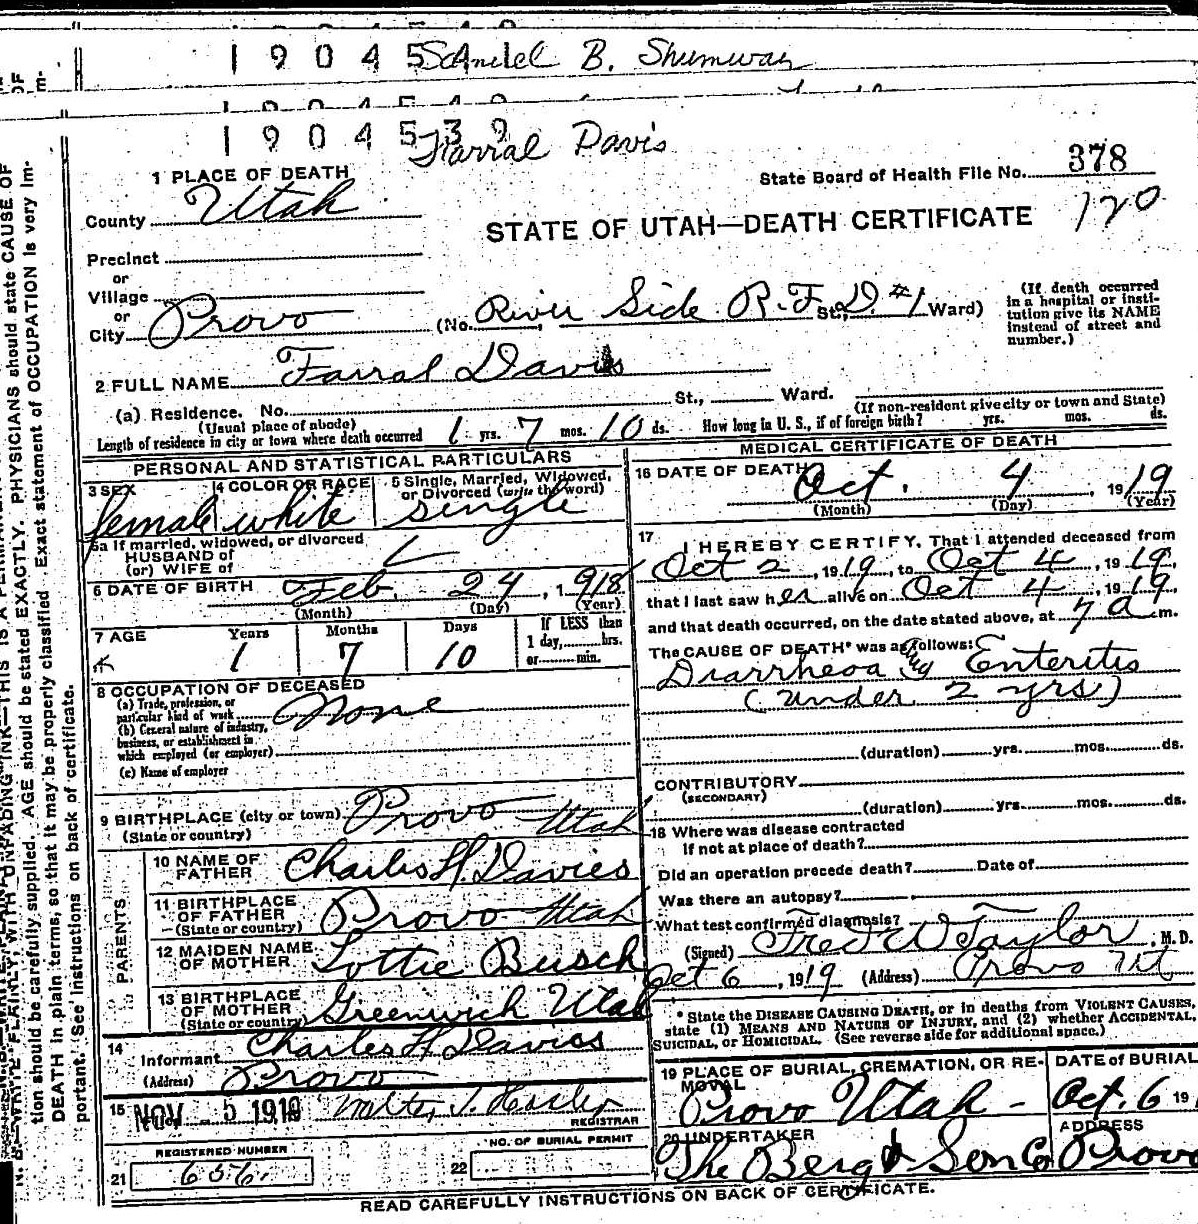 1 9 0 4 5 Samuel B. Shumway
1 9 0 4 5 3 9
Farral Davis
1 PLACE OF DEATH
State Board of Health File No. 378
County Utah
STATE OF UTAH—DEATH CERTIFICATE 120
Precinct
or
Village
or
City Provo (No. River Side R.F.D. #1 St., Ward)
(If death occurred in a hospital or insti-
tution give its NAME
instead of street and
number.)
2 FULL NAME Farral Davis
(a) Residence. No. St., Ward.
(Usual place of abode) (If non-resident give city or town and State)
Length of residence in city or town where death occurred 1 yrs. 7 mos. 10 ds. How long in U. S., if of foreign birth? yrs. mos. ds.
PERSONAL AND STATISTICAL PARTICULARS
3 SEX 4 COLOR OR RACE 5 Single, Married, Widowed,
or Divorced (write the word)
female white single
5a If married, widowed, or divorced
HUSBAND of
(or) WIFE of
6 DATE OF BIRTH Feb. 24, 1918
(Month) (Day) (Year)
7 AGE Years Months Days If LESS than
1 day, hrs.
or min.
1 7 10
8 OCCUPATION OF DECEASED
(a) Trade, profession, or
particular kind of work None
(b) General nature of industry,
business, or establishment in
which employed (or employer)
(c) Name of employer
9 BIRTHPLACE (city or town) Provo Utah
(State or country)
PARENTS
10 NAME OF
FATHER Charles H. Davies
11 BIRTHPLACE
OF FATHER Provo Utah
(State or country)
12 MAIDEN NAME
OF MOTHER Lottie Busch
13 BIRTHPLACE
OF MOTHER Greenwich Utah
(State or country)
14
Informant Charles H Davies
(Address) Provo
15 NOV 5 1919
REGISTRAR
REGISTERED NUMBER
21 656.
NO. OF BURIAL PERMIT
22
MEDICAL CERTIFICATE OF DEATH
16 DATE OF DEATH Oct. 4, 1919
(Month) (Day) (Year)
17 I HEREBY CERTIFY, That I attended deceased from
Oct 2, 1919, to Oct 4, 1919,
that I last saw her alive on Oct 4, 1919,
and that death occurred, on the date stated above, at 7 a m.
The CAUSE OF DEATH* was as follows:
Diarrhoea & Enteritis
(under 2 yrs)
(duration) yrs. mos. ds.
CONTRIBUTORY
(SECONDARY)
(duration) yrs. mos. ds.
18 Where was disease contracted
if not at place of death?
Did an operation precede death? Date of
Was there an autopsy?
What test confirmed diagnosis?
(Signed) Fred W Taylor, M. D.
Oct 6, 1919 (Address) Provo Ut
* State the DISEASE CAUSING DEATH, or in deaths from VIOLENT CAUSES,
state (1) MEANS AND NATURE OF INJURY, and (2) whether ACCIDENTAL,
SUICIDAL, or HOMICIDAL. (See reverse side for additional space.)
19 PLACE OF BURIAL, CREMATION, OR RE-
MOVAL
Provo Utah -
DATE of BURIAL
Oct. 6 19
20 UNDERTAKER
The Berg & Son Co
ADDRESS
Provo
READ CAREFULLY INSTRUCTIONS ON BACK OF CERTIFICATE.
tion should be carefully supplied. AGE should be stated EXACTLY. PHYSICIANS should state CAUSE OF
DEATH in plain terms, so that it may be properly classified. Exact statement of OCCUPATION is very im-
portant. See instructions on back of certificate.